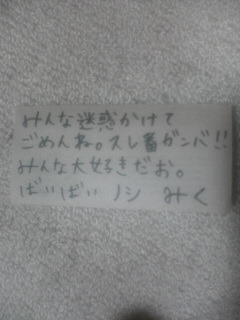 みんな迷惑かけて
ごめんね。スレ番ガンバ!!
みんな大好きだお。
ばいばい ノシ みく